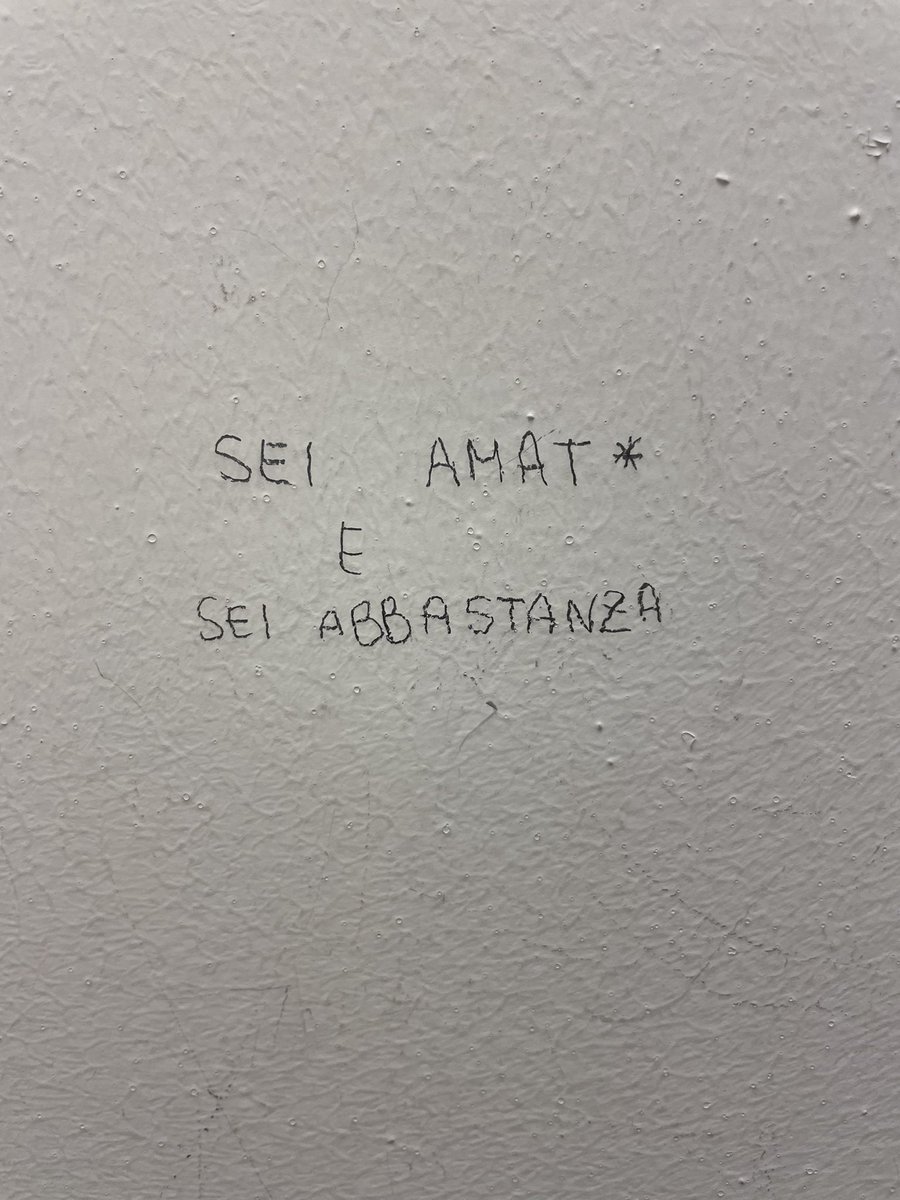 SEI AMAT*
E
SEI ABBASTANZA